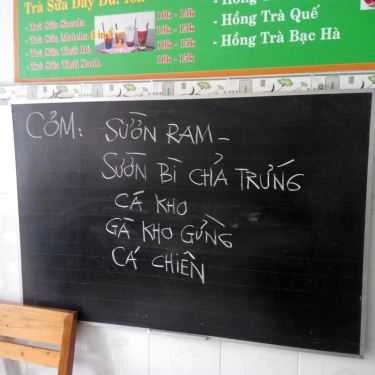 Trà Sữa Dây Dủ. Tôn
- Trà Sữa Socola 10k - 15k
- Trà Sữa Matcha 10k - 15k
- Trà Sữa Thái Đỏ 10k - 15k
- Trà Sữa Thái Xanh 10k - 15k
- Hồng Trà Quế
- Hồng Trà Bạc Hà
CƠM: SƯỜN RAM -
SƯỜN BÌ CHẢ TRỨNG
CÁ KHO
GÀ KHO GỪNG
CÁ CHIÊN